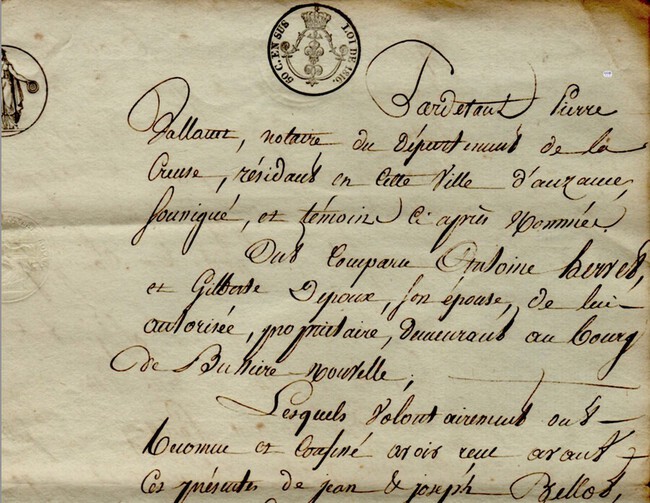 50 C. EN SUS
LOI DE 1816.
Pardevant Pierre
Vallanet, notaire du Département de la
Creuse, résidant en cette Ville d'auzance,
Soussigné, et témoins Ci après Nommés.
Ont Comparu Antoine hervet,
et Gilberte Dejoux, Son épouse, de lui
autorisée, propriétaire, demeurant au bourg
de Bussière nouvelle;
Lesquels Volontairement ont
Reconnu et Confessé avoir reçu avant
Ces présentes de jean & joseph Bellot